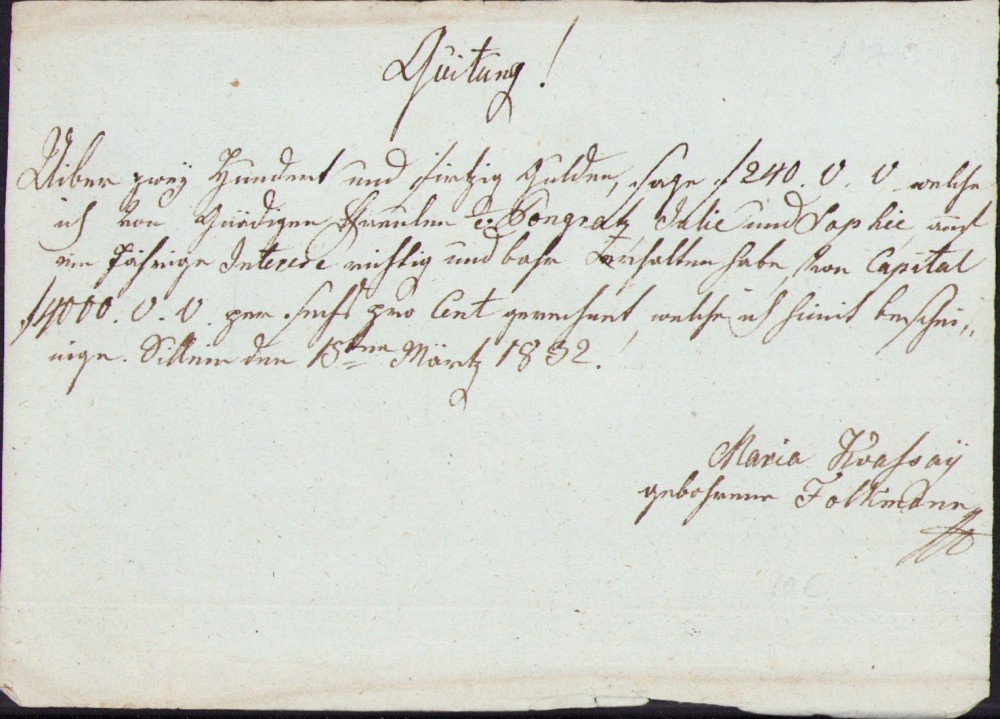 Quitung!
Uiber zweÿ Hundert und firtzig Gulden, sage f 240. V. V. welche
ich von Gnädigen Freulen v. Pongratz Julie und Sophie, auf
ein Jährige Interese richtig und bahr Erhalten habe, von Capital
f 4000. V. V. per sechs pro Cent gerechnet, welche ich himit beschei„
nige. Sillein den 15ten Märtz 1832.
Maria Kvassaÿ
gebohrene